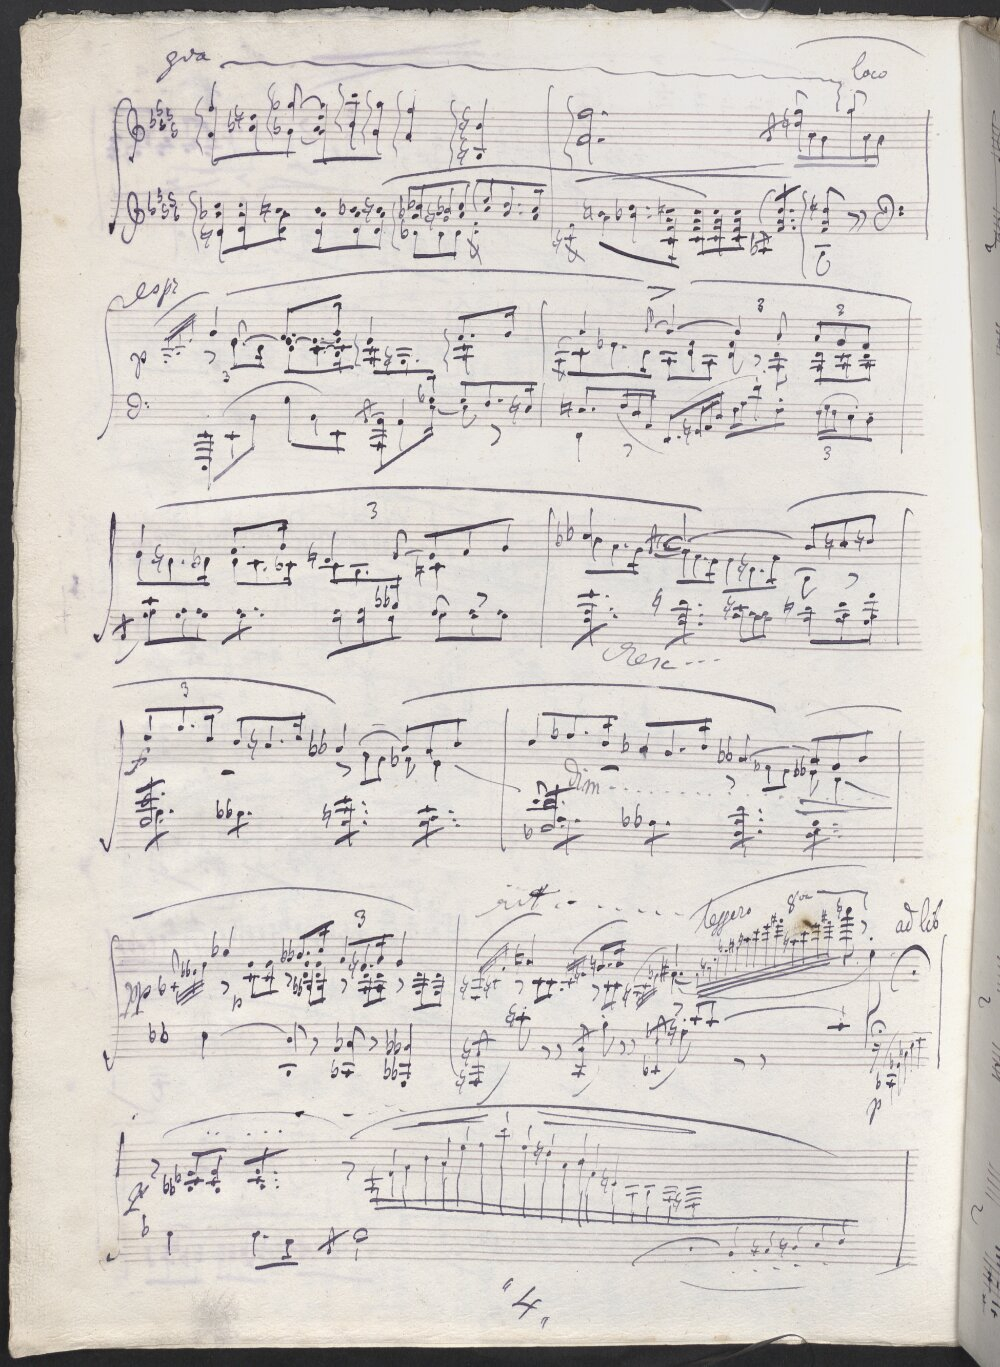 8va loco
espr
p
3 3 3
3
3
cresc ---
3
f
dim
rit
leggero 8va
3
ad lib
p
"4"